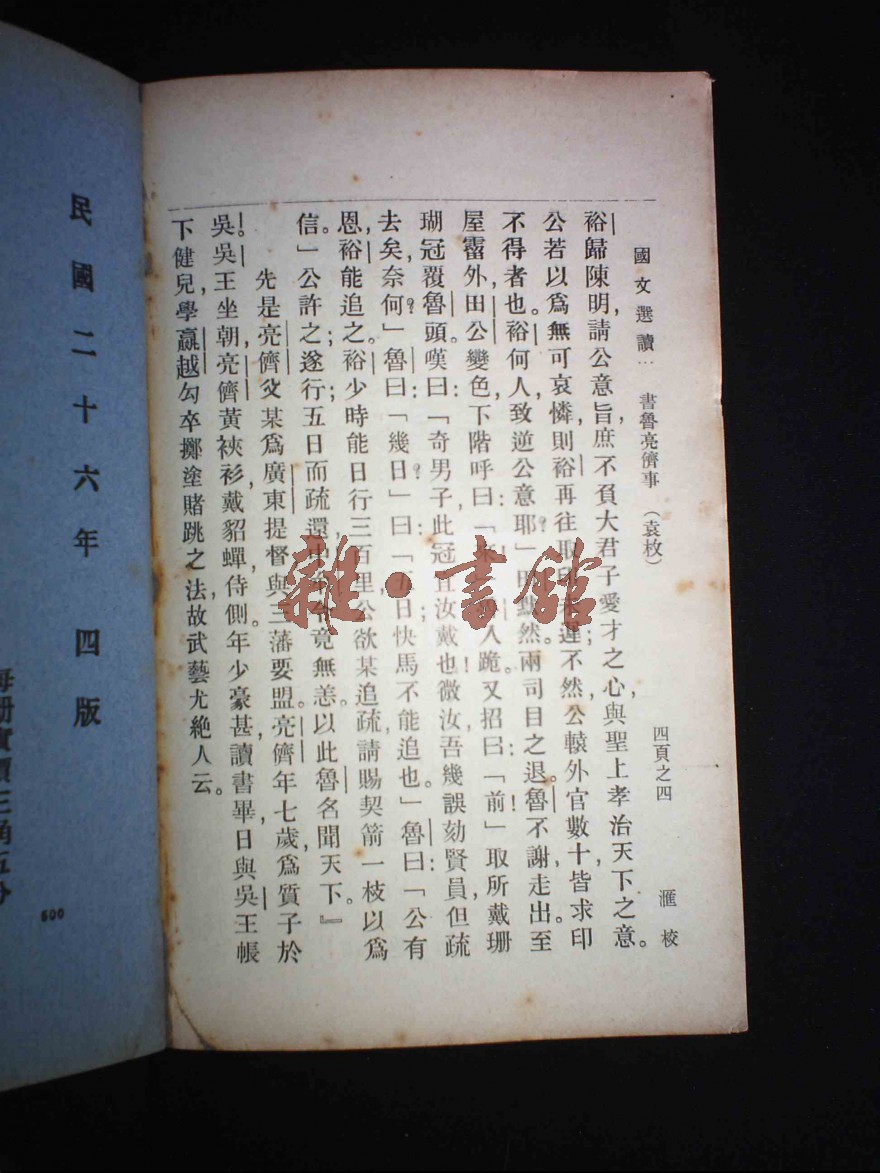 國文選讀⋯ 書魯亮儕事 （袁枚） 四頁之四 滙校
裕歸陳明,請公意旨,庶不負大君子愛才之心,與聖上孝治天下之意。
公若以爲無可哀憐,則裕再往取印未遲;不然,公轅外官數十,皆求印
不得者也。裕何人,致逆公意耶?」田默然。兩司目之退。魯不謝,走出。至
屋霤外,田公變色下階呼曰:「來!」人跪。又招曰:「前!」取所戴珊
瑚冠覆魯頭,嘆曰:「奇男子!此冠宜汝戴也!微汝,吾幾誤劾賢員。但疏
去矣,奈何?」魯曰:「幾日?」曰:「五日,快馬不能追也。」魯曰:「公有
恩,裕能追之。裕少時能日行三百里;公欲某追疏,請賜契箭一枝以爲
信。」公許之;遂行;五日而疏還。中牟令竟無恙。以此魯名聞天下。』
先是,亮儕父某爲廣東提督,與三藩要盟。亮儕年七歲,爲質子於
吳。吳王坐朝,亮儕黃裌衫,戴貂蟬侍側。年少豪甚,讀書畢,日與吳王帳
下健兒學嬴越勾卒擲塗賭跳之法,故武藝尤絶人云。
民國二十六年 四版
每册實價三角五分
600
雜·書館